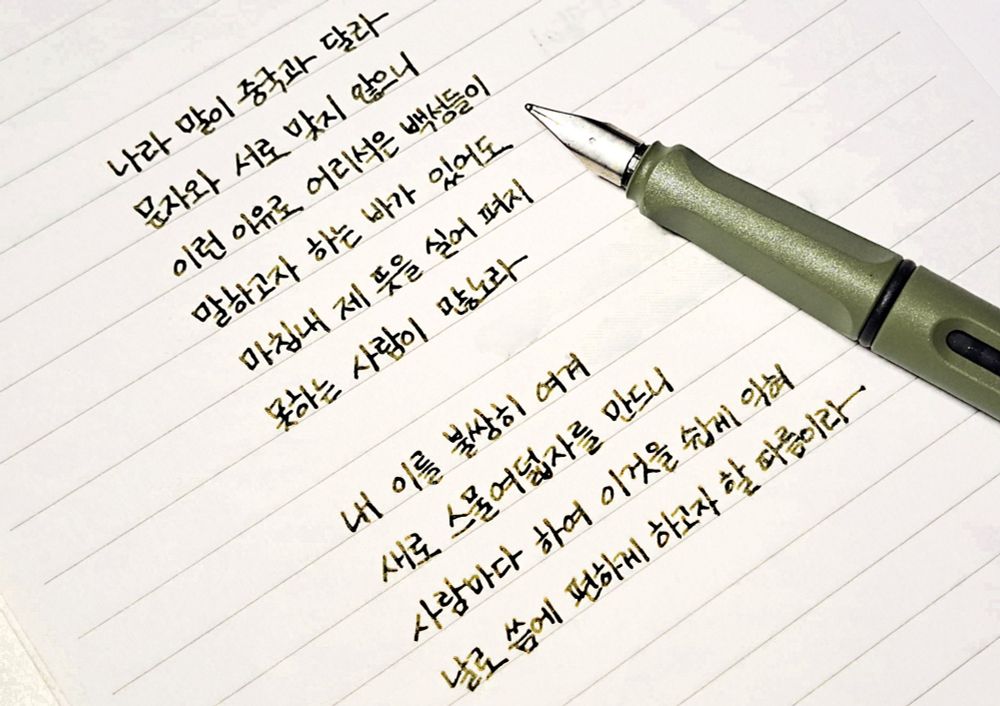 나라 말이 중국과 달라
문자와 서로 맞지 않으니
이런 이유로 어리석은 백성들이
말하고자 하는 바가 있어도
마침내 제 뜻을 실어 펴지
못하는 사람이 많노라
내 이를 불쌍히 여겨
새로 스물여덟자를 만드니
사람마다 하여 이것을 쉽게 익혀
날로 씀에 편하게 하고자 할 따름이라